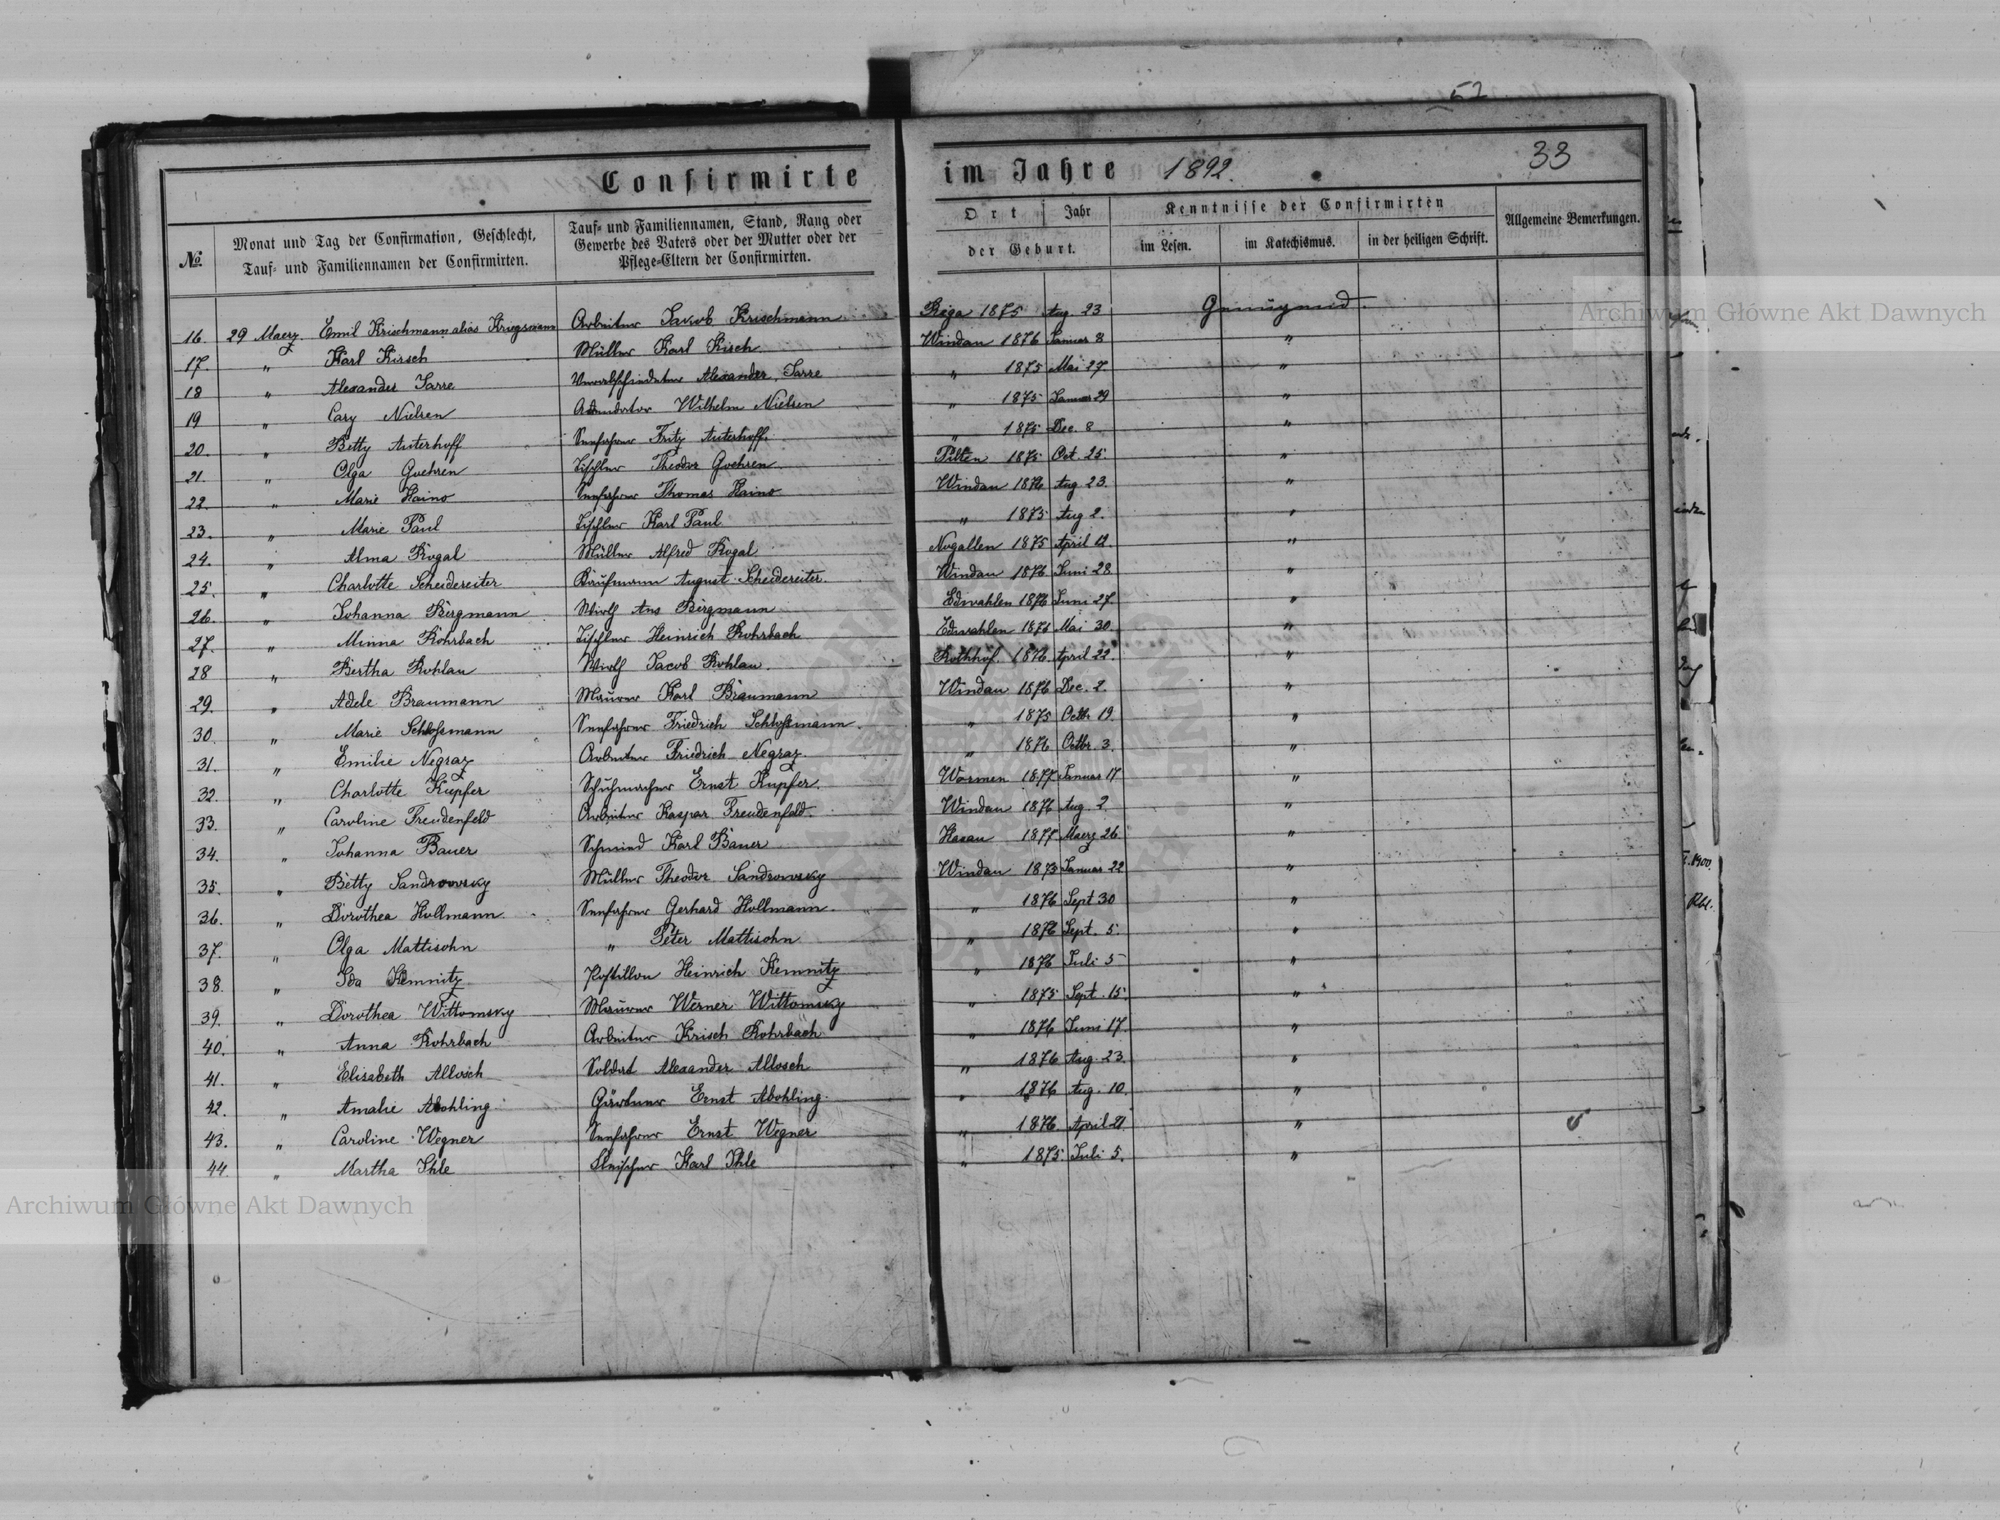 52
Confirmirte im Jahre 1892. 33
№ Monat und Tag der Confirmation, Geschlecht, Tauf- und Familiennamen der Confirmirten. Tauf- und Familiennamen, Stand, Rang oder Gewerbe des Vaters oder der Mutter oder der Pflege-Eltern der Confirmirten. Ort Jahr der Geburt. Kenntnisse der Confirmirten im Lesen. im Katechismus. in der heiligen Schrift. Allgemeine Bemerkungen.
16. 29 Maerz. Emil Krischmann alias Kriegsmann Arbeiter Jacob Krischmann Riga 1875 Aug 23 Genügend
17. " Karl Kirsch Müller Karl Kisch Windau 1876 Januar 8 "
18 " Alexander Jarre Alexander Jarre " 1875 Mai 27 "
19 " Cary Nielsen Wilhelm Nielsen " 1875 Januar 29 "
20. " Betty Auterhoff Seefahrer Fritz Auterhoff. " 1875 Dec. 8 "
21. " Olga Goehren Tischler Theodor Goehren Pilten 1875 Oct. 25 "
22. " Marie Haino Seefahrer Thomas Haino Windau 1876 Aug 23. "
23. " Marie Paul Tischler Karl Paul " 1875 Aug 2. "
24. " Alma Rogal Müller Alfred Rogal Nogallen 1875 April 12. "
25. " Charlotte Scheidereiter Kaufmann August Scheidereiter. Windau 1876 Juni 28 "
26. " Johanna Bergmann Wirth Ans Bergmann Edwahlen 1876 Juni 27. "
27. " Minna Rohrbach Tischler Heinrich Rohrbach Edwahlen 1876 Mai 30. "
28 " Bertha Kohlau Wirth Jacob Kohlau. Rothhof. 1876. April 22. "
29. " Adele Braumann Maurer Karl Braumann Windau 1876 Dec. 2. "
30. " Marie Schloßmann Seefahrer Friedrich Schloßmann. " 1875 Octb. 19. "
31. " Emilie Negraz Arbeiter Friedrich Negraz. " 1876 Octbr. 3. "
32. " Charlotte Kupfer Schuhmacher Ernst Kupfer. Wormen 1877 Januar 17 "
33. " Caroline Freudenfeld Arbeiter Kaspar Freudenfeld. Windau 1876 Aug. 2 "
34. " Johanna Bauer Schmied Karl Bauer Hasau 1877 Maerz 26 "
35. " Betty Sandrowsky Müller Theodor Sandrowsky Windau 1873 Januar 22 "
36. " Dorothea Hollmann Seefahrer Gerhard Hollmann. " 1876 Sept 30 "
37. " Olga Mattisohn " Peter Mattisohn " 1876 Sept. 5. "
38. " Ida Kemnitz Postillon Heinrich Kemnitz " 1876 Juli 5 "
39. " Dorothea Wittomsky Maurer Werner Wittomsky " 1875 Sept. 15. "
40. " Anna Rohrbach Arbeiter Krisch Rohrbach " 1876 Juni 17. "
41. " Elisabeth Allosch Soldat Alexander Allosch " 1876 Aug. 23. "
42. " Amalie Abohling Gärtner Ernst Abohling. " 1876 Aug. 10. "
43. " Caroline Wegner Seefahrer Ernst Wegner " 1876 April 21 "
44. " Martha Ihle Fleischer Karl Ihle " 1875. Juli 5. "
Archiwum Główne Akt Dawnych
Archiwum Główne Akt Dawnych